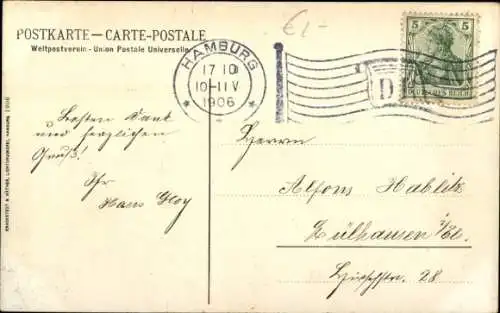 POSTKARTE — CARTE-POSTALE
Weltpostverein - Union Postale Universelle
£1-
HAMBURG
17 10
10-11 V
1906
D
5 5
DEUTSCHES REICH
Besten Dank
und herzlichen
Gruß!
Ihr
Hans Gloy
Herrn
Alfons Hablitz
Mülhausen i/El.
Hirschstr. 28
KNACKSTEDT & NÄTHER, LICHTDRUCKEREI, HAMBURG